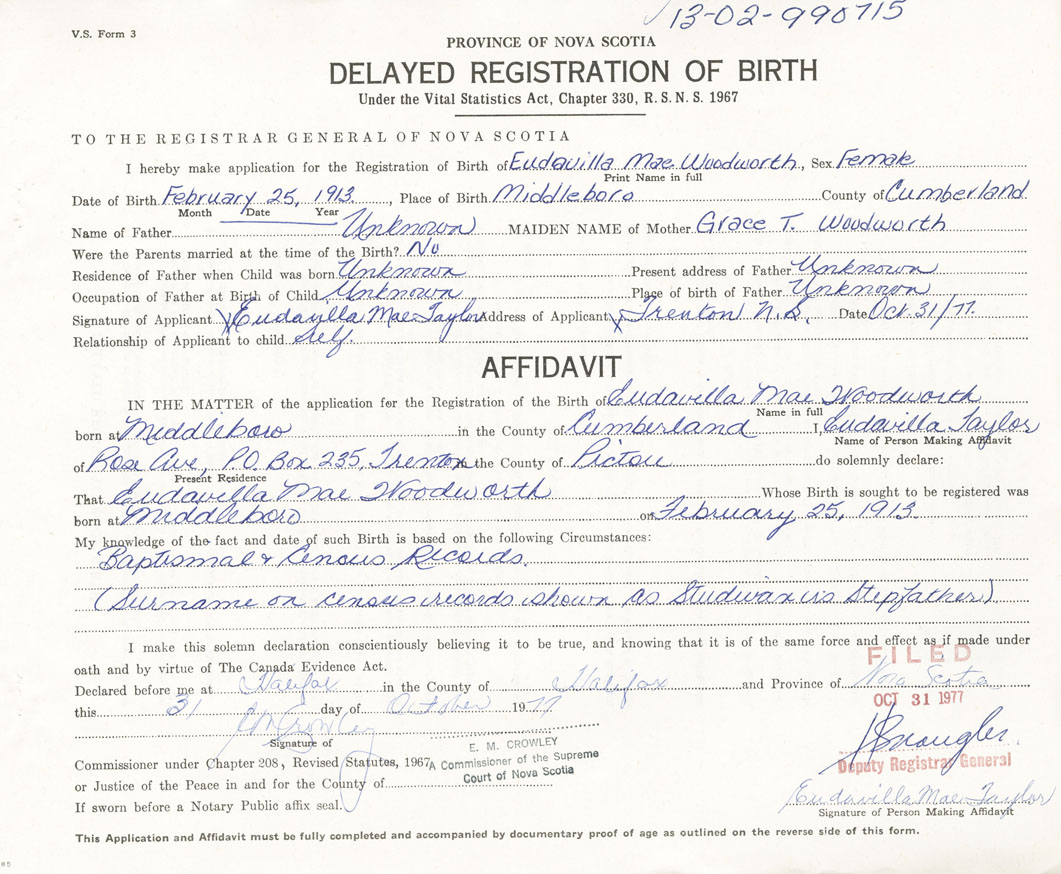 13-02-990715
V.S. Form 3
PROVINCE OF NOVA SCOTIA
DELAYED REGISTRATION OF BIRTH
Under the Vital Statistics Act, Chapter 330, R.S.N.S. 1967
TO THE REGISTRAR GENERAL OF NOVA SCOTIA
I hereby make application for the Registration of Birth of Eudavilla Mae Woodworth, Sex Female
Print Name in full
Date of Birth February 25, 1913, Place of Birth Middleboro County of Cumberland
Month Date Year
Name of Father Unknown MAIDEN NAME of Mother Grace T. Woodworth
Were the Parents married at the time of the Birth? No
Residence of Father when Child was born Unknown Present address of Father Unknown
Occupation of Father at Birth of Child Unknown Place of birth of Father Unknown
Signature of Applicant X Eudavilla Mae Taylor Address of Applicant X Trenton N.S. Date Oct. 31/77.
Relationship of Applicant to child self.
AFFIDAVIT
IN THE MATTER of the application for the Registration of the Birth of Eudavilla Mae Woodworth
Name in full
born at Middleboro in the County of Cumberland I, Eudavilla Taylor
Name of Person Making Affidavit
of Rose Ave, P.O. Box 235, Trenton in the County of Pictou do solemnly declare:
Present Residence
That Eudavilla Mae Woodworth Whose Birth is sought to be registered was
born at Middleboro on February 25, 1913.
My knowledge of the fact and date of such Birth is based on the following Circumstances:
Baptismal & Census Records.
(Surname on census records shown as Studivan is Stepfather)
I make this solemn declaration conscientiously believing it to be true, and knowing that it is of the same force and effect as if made under
oath and by virtue of The Canada Evidence Act.
FILED
Declared before me at Halifax in the County of Halifax and Province of Nova Scotia
OCT 31 1977
this 31 day of October 1977
EM Crowley
Signature of
E. M. CROWLEY
A Commissioner of the Supreme
Court of Nova Scotia
Commissioner under Chapter 208, Revised Statutes, 1967,
Deputy Registrar General
or Justice of the Peace in and for the County of
Eudavilla Mae Taylor
If sworn before a Notary Public affix seal.
Signature of Person Making Affidavit
This Application and Affidavit must be fully completed and accompanied by documentary proof of age as outlined on the reverse side of this form.